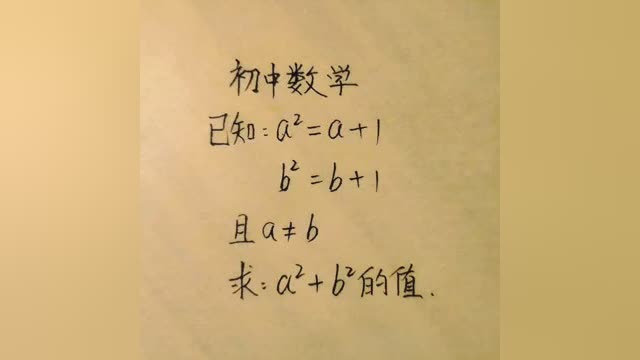 初中数学
已知:a²=a+1
b²=b+1
且a≠b
求:a²+b²的值.